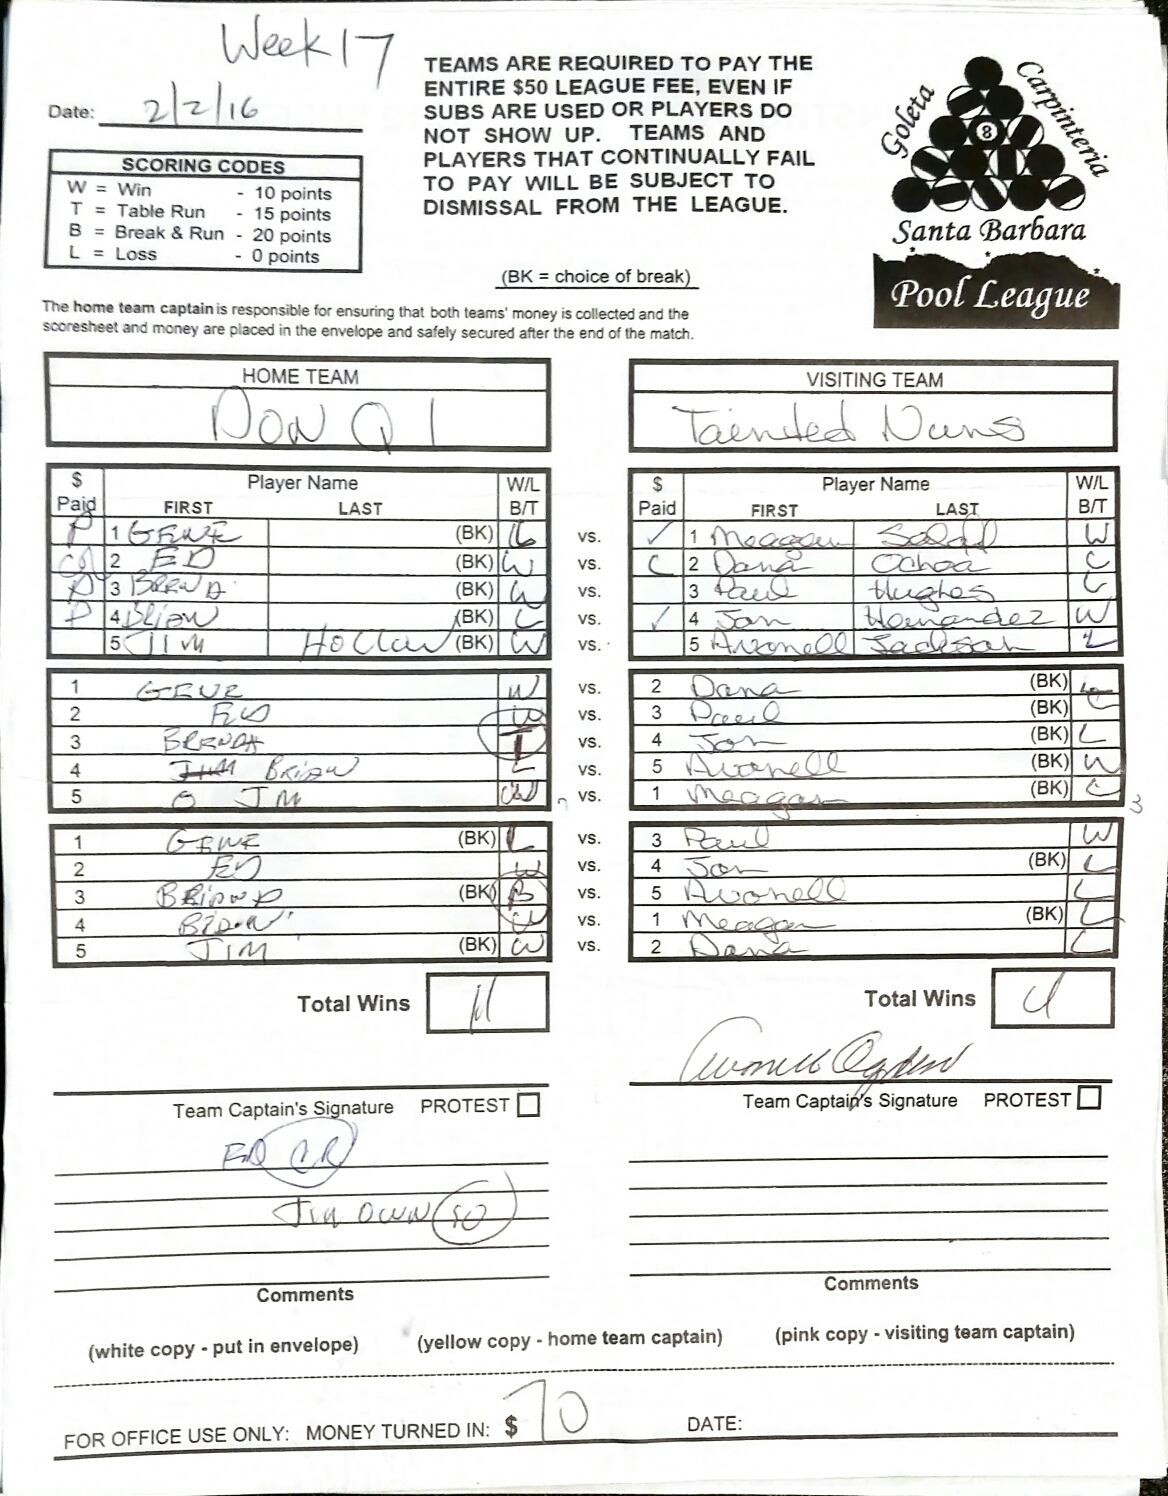 Week 17
Date: 2/2/16
TEAMS ARE REQUIRED TO PAY THE
ENTIRE $50 LEAGUE FEE, EVEN IF
SUBS ARE USED OR PLAYERS DO
NOT SHOW UP. TEAMS AND
PLAYERS THAT CONTINUALLY FAIL
TO PAY WILL BE SUBJECT TO
DISMISSAL FROM THE LEAGUE.
Goleta
Carpinteria
8
Santa Barbara
Pool League
SCORING CODES
W = Win - 10 points
T = Table Run - 15 points
B = Break & Run - 20 points
L = Loss - 0 points
(BK = choice of break)
The home team captain is responsible for ensuring that both teams' money is collected and the
scoresheet and money are placed in the envelope and safely secured after the end of the match.
HOME TEAM VISITING TEAM
DON Q 1 Tainted Nuns
$ Paid Player Name FIRST LAST W/L B/T
$ Paid Player Name FIRST LAST W/L B/T
P 1 GENE (BK) L vs. ✓ 1 Meagan W
2 ED (BK) W vs. C 2 Dana Ochoa L
P 3 BRENDA (BK) W vs. 3 Paul Hughes L
P 4 BRIAN (BK) L vs. ✓ 4 Jon Hernandez W
5 JIM (BK) W vs. 5 Avonell Jackson L
1 GENE W vs. 2 Dana (BK) L
2 ED W vs. 3 Paul (BK) L
3 BRENDA T vs. 4 Jon (BK) L
4 BRIAN L vs. 5 Avonell (BK) W
5 JIM W vs. 1 Meagan (BK) L 3
1 GENE (BK) L vs. 3 Paul W
2 ED W vs. 4 Jon (BK) L
3 (BK) B vs. 5 Avonell L
4 BRIAN W vs. 1 Meagan (BK) L
5 JIM (BK) W vs. 2 Dana L
Total Wins 11 Total Wins 4
Avonell Ogden
Team Captain's Signature PROTEST Team Captain's Signature PROTEST
ED CR
JIM OWN 10
Comments Comments
(white copy - put in envelope) (yellow copy - home team captain) (pink copy - visiting team captain)
FOR OFFICE USE ONLY: MONEY TURNED IN: $ 70 DATE: